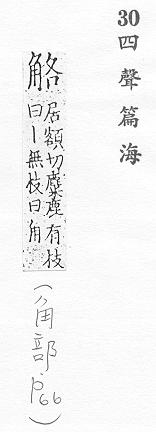 30四聲篇海
觡
居額切麋鹿有枝
曰丨無枝曰角
（角部P66）